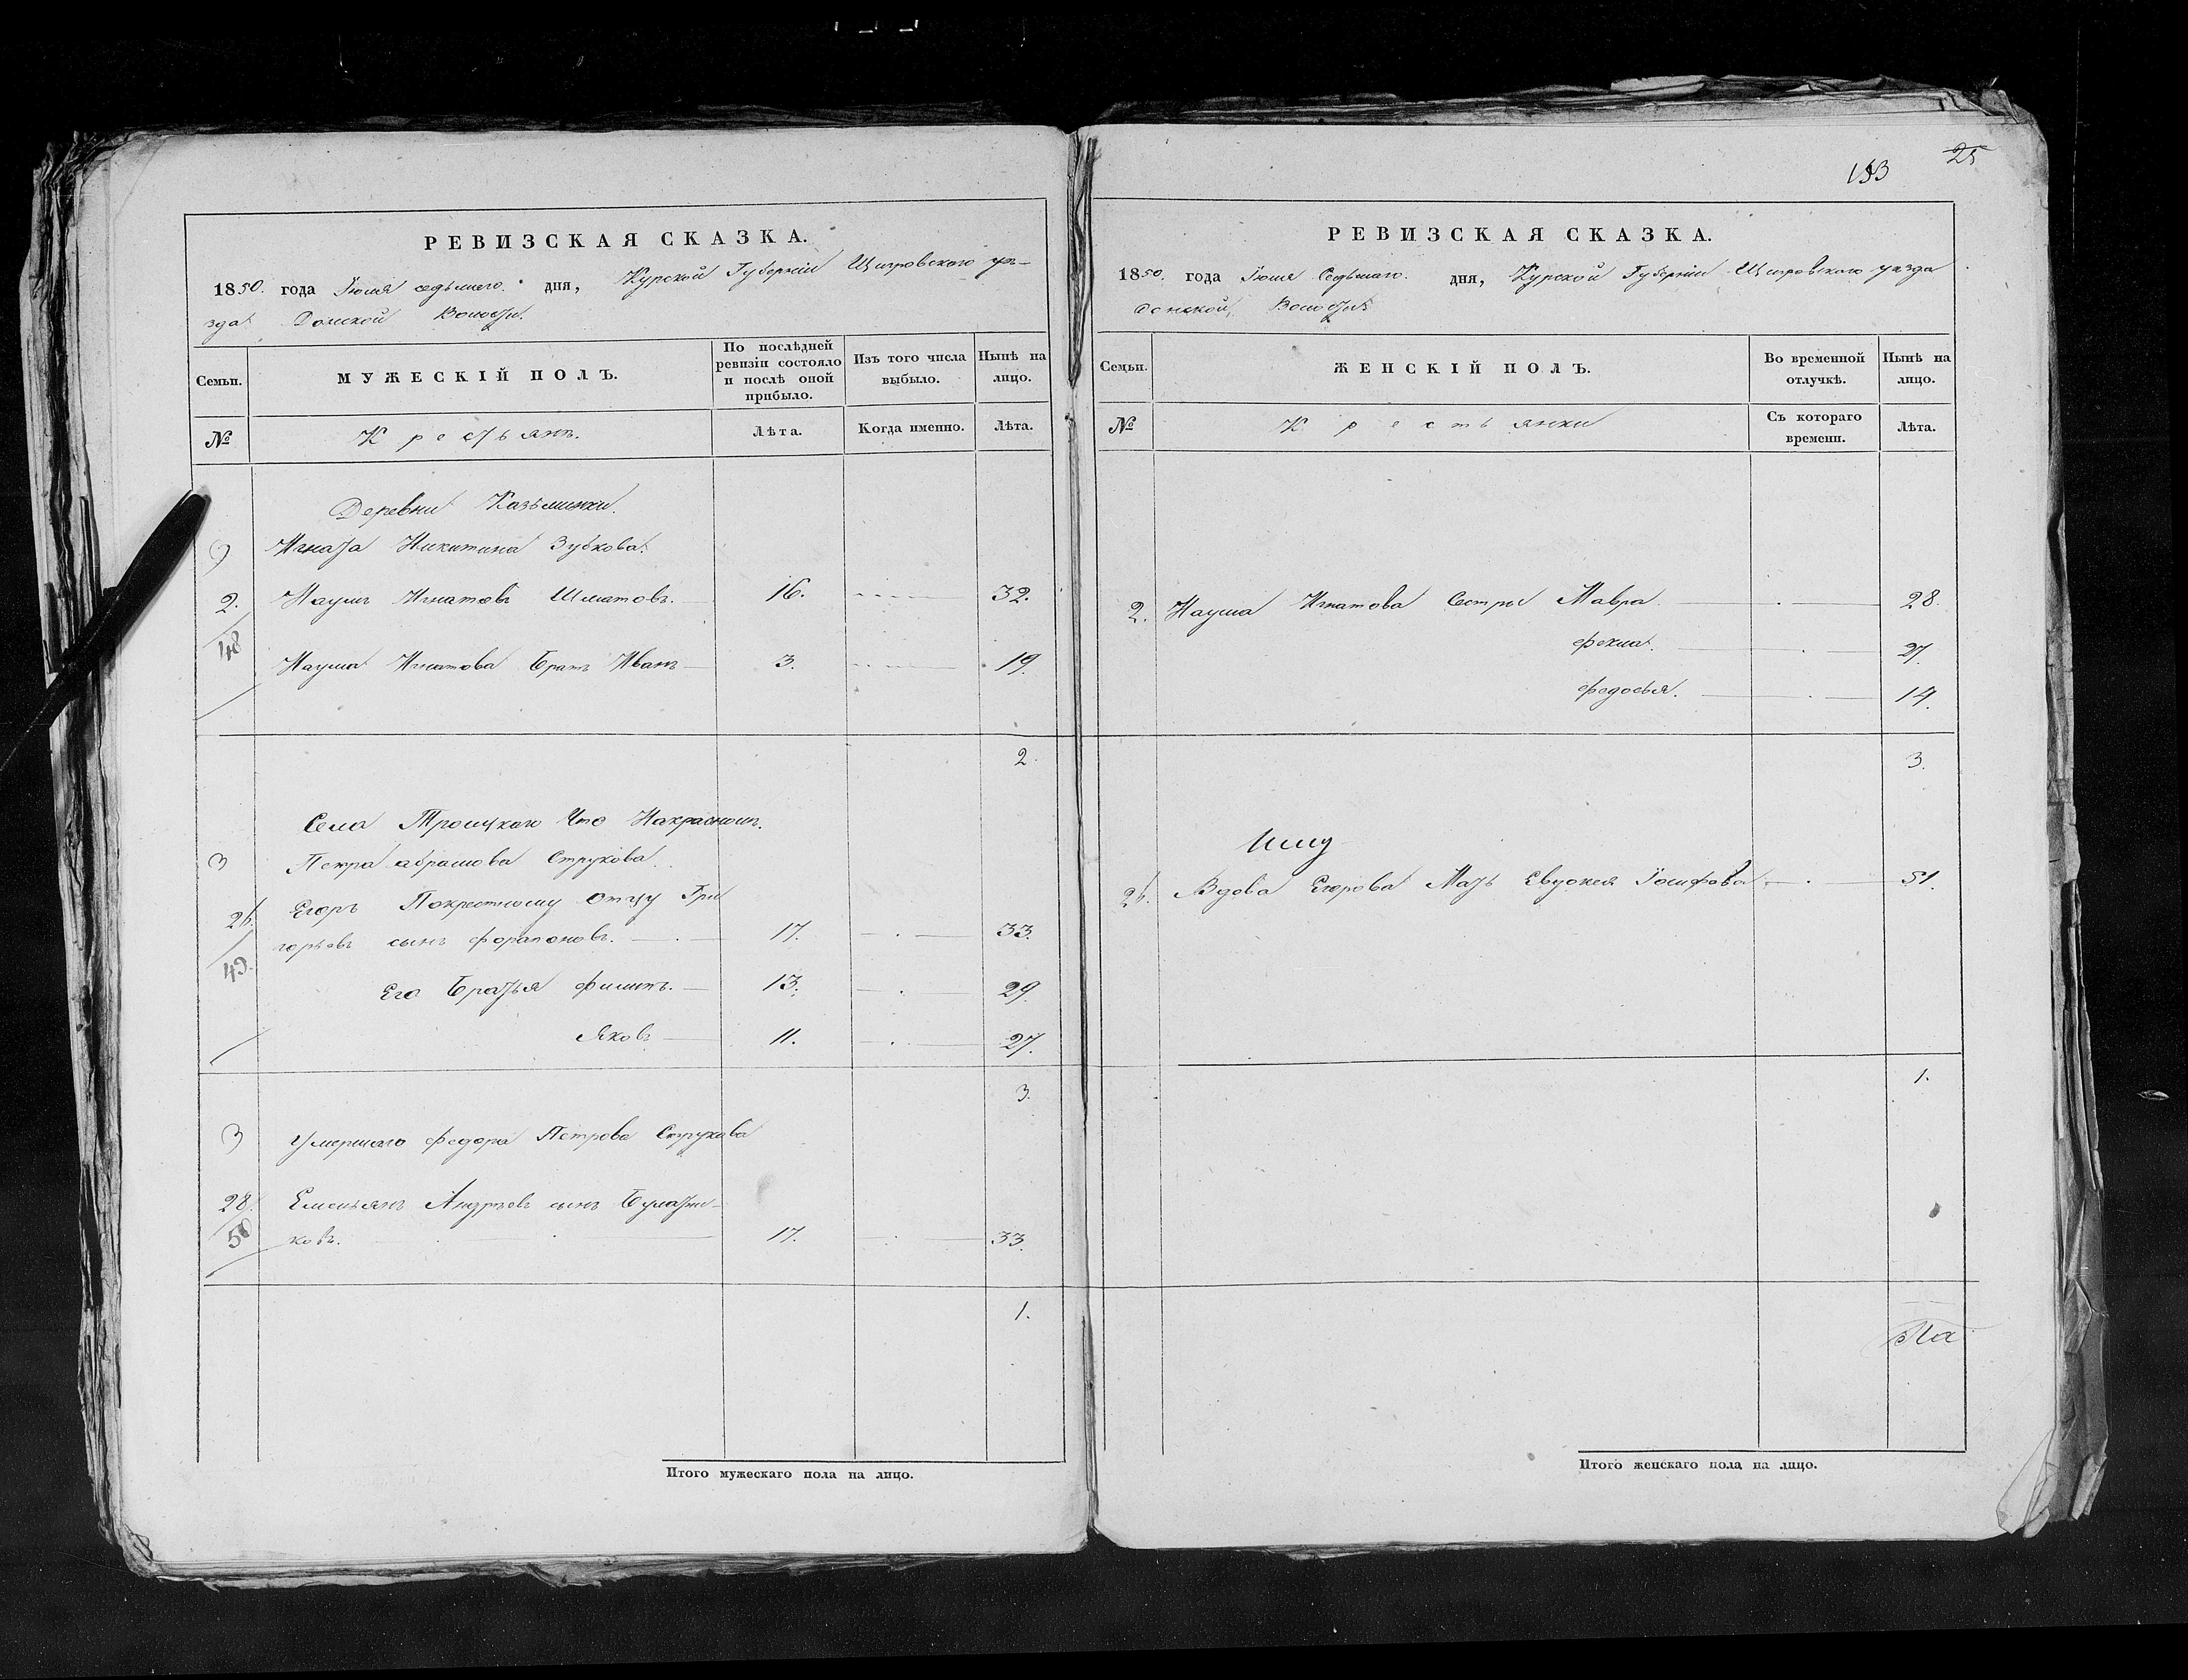 РЕВИЗСКАЯ СКАЗКА.
1850. года Іюля седьмаго дня, Курской Губерніи Щигровскаго уѣ-
зда Волости.
Семьи. МУЖЕСКІЙ ПОЛЪ. По послѣдней ревизіи состояло и послѣ оной прибыло. Изъ того числа выбыло. Нынѣ на лицо.
№ Крестьянъ. Лѣта. Когда именно. Лѣта.
Деревни
Игната Никитина Зубкова.
2. Наумъ Игнатовъ 16. 32.
48
Наума Игнатова братъ Иванъ 3. 19.
2.
Села Троицкаго что Накрасномъ.
3 Петра Абрамова Струкова
Егоръ Покрестному Отцу Гри
26. горьевъ сынъ 17. 33.
49.
Его братья Филипъ. 13. 29.
Яковъ 11. 27.
3.
3 Умершаго Федора Петрова Струкова
28. Емельянъ Андреевъ сынъ
50 ковъ. 17. 33.
1.
Итого мужескаго пола на лицо.
25
153
РЕВИЗСКАЯ СКАЗКА.
1850. года Іюля Седьмаго. дня, Курской Губерніи Щигровскаго уѣзда
Волости
Семьи. ЖЕНСКІЙ ПОЛЪ. Во временной отлучкѣ. Нынѣ на лицо.
№ Крестьянки Съ котораго времени. Лѣта.
2. Наума Игнатова Сестры Мавра 28.
Фекла. 27.
Федосья. 14.
3.
26. Вдова Егорова Мать Евдокея Іосифова 51.
1.
Итого женскаго пола на лицо.